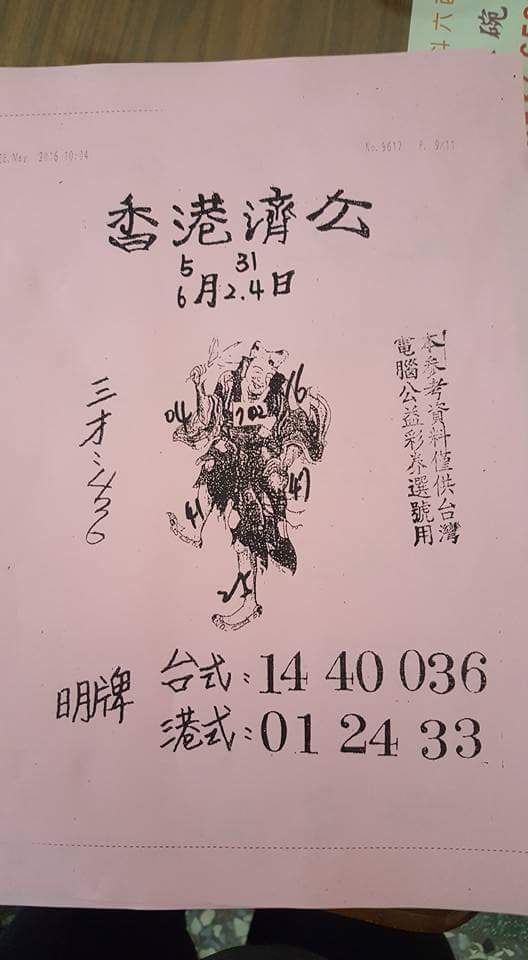 六
碗
26.May 2016 10:04
No.9617 P. 9/11
香港濟公
5 31
6月2.4日
本參考資料僅供台灣
電腦公益彩券選號用
三才:436
04
702
16
41
47
25
明牌
台式:14 40 036
港式:01 24 33